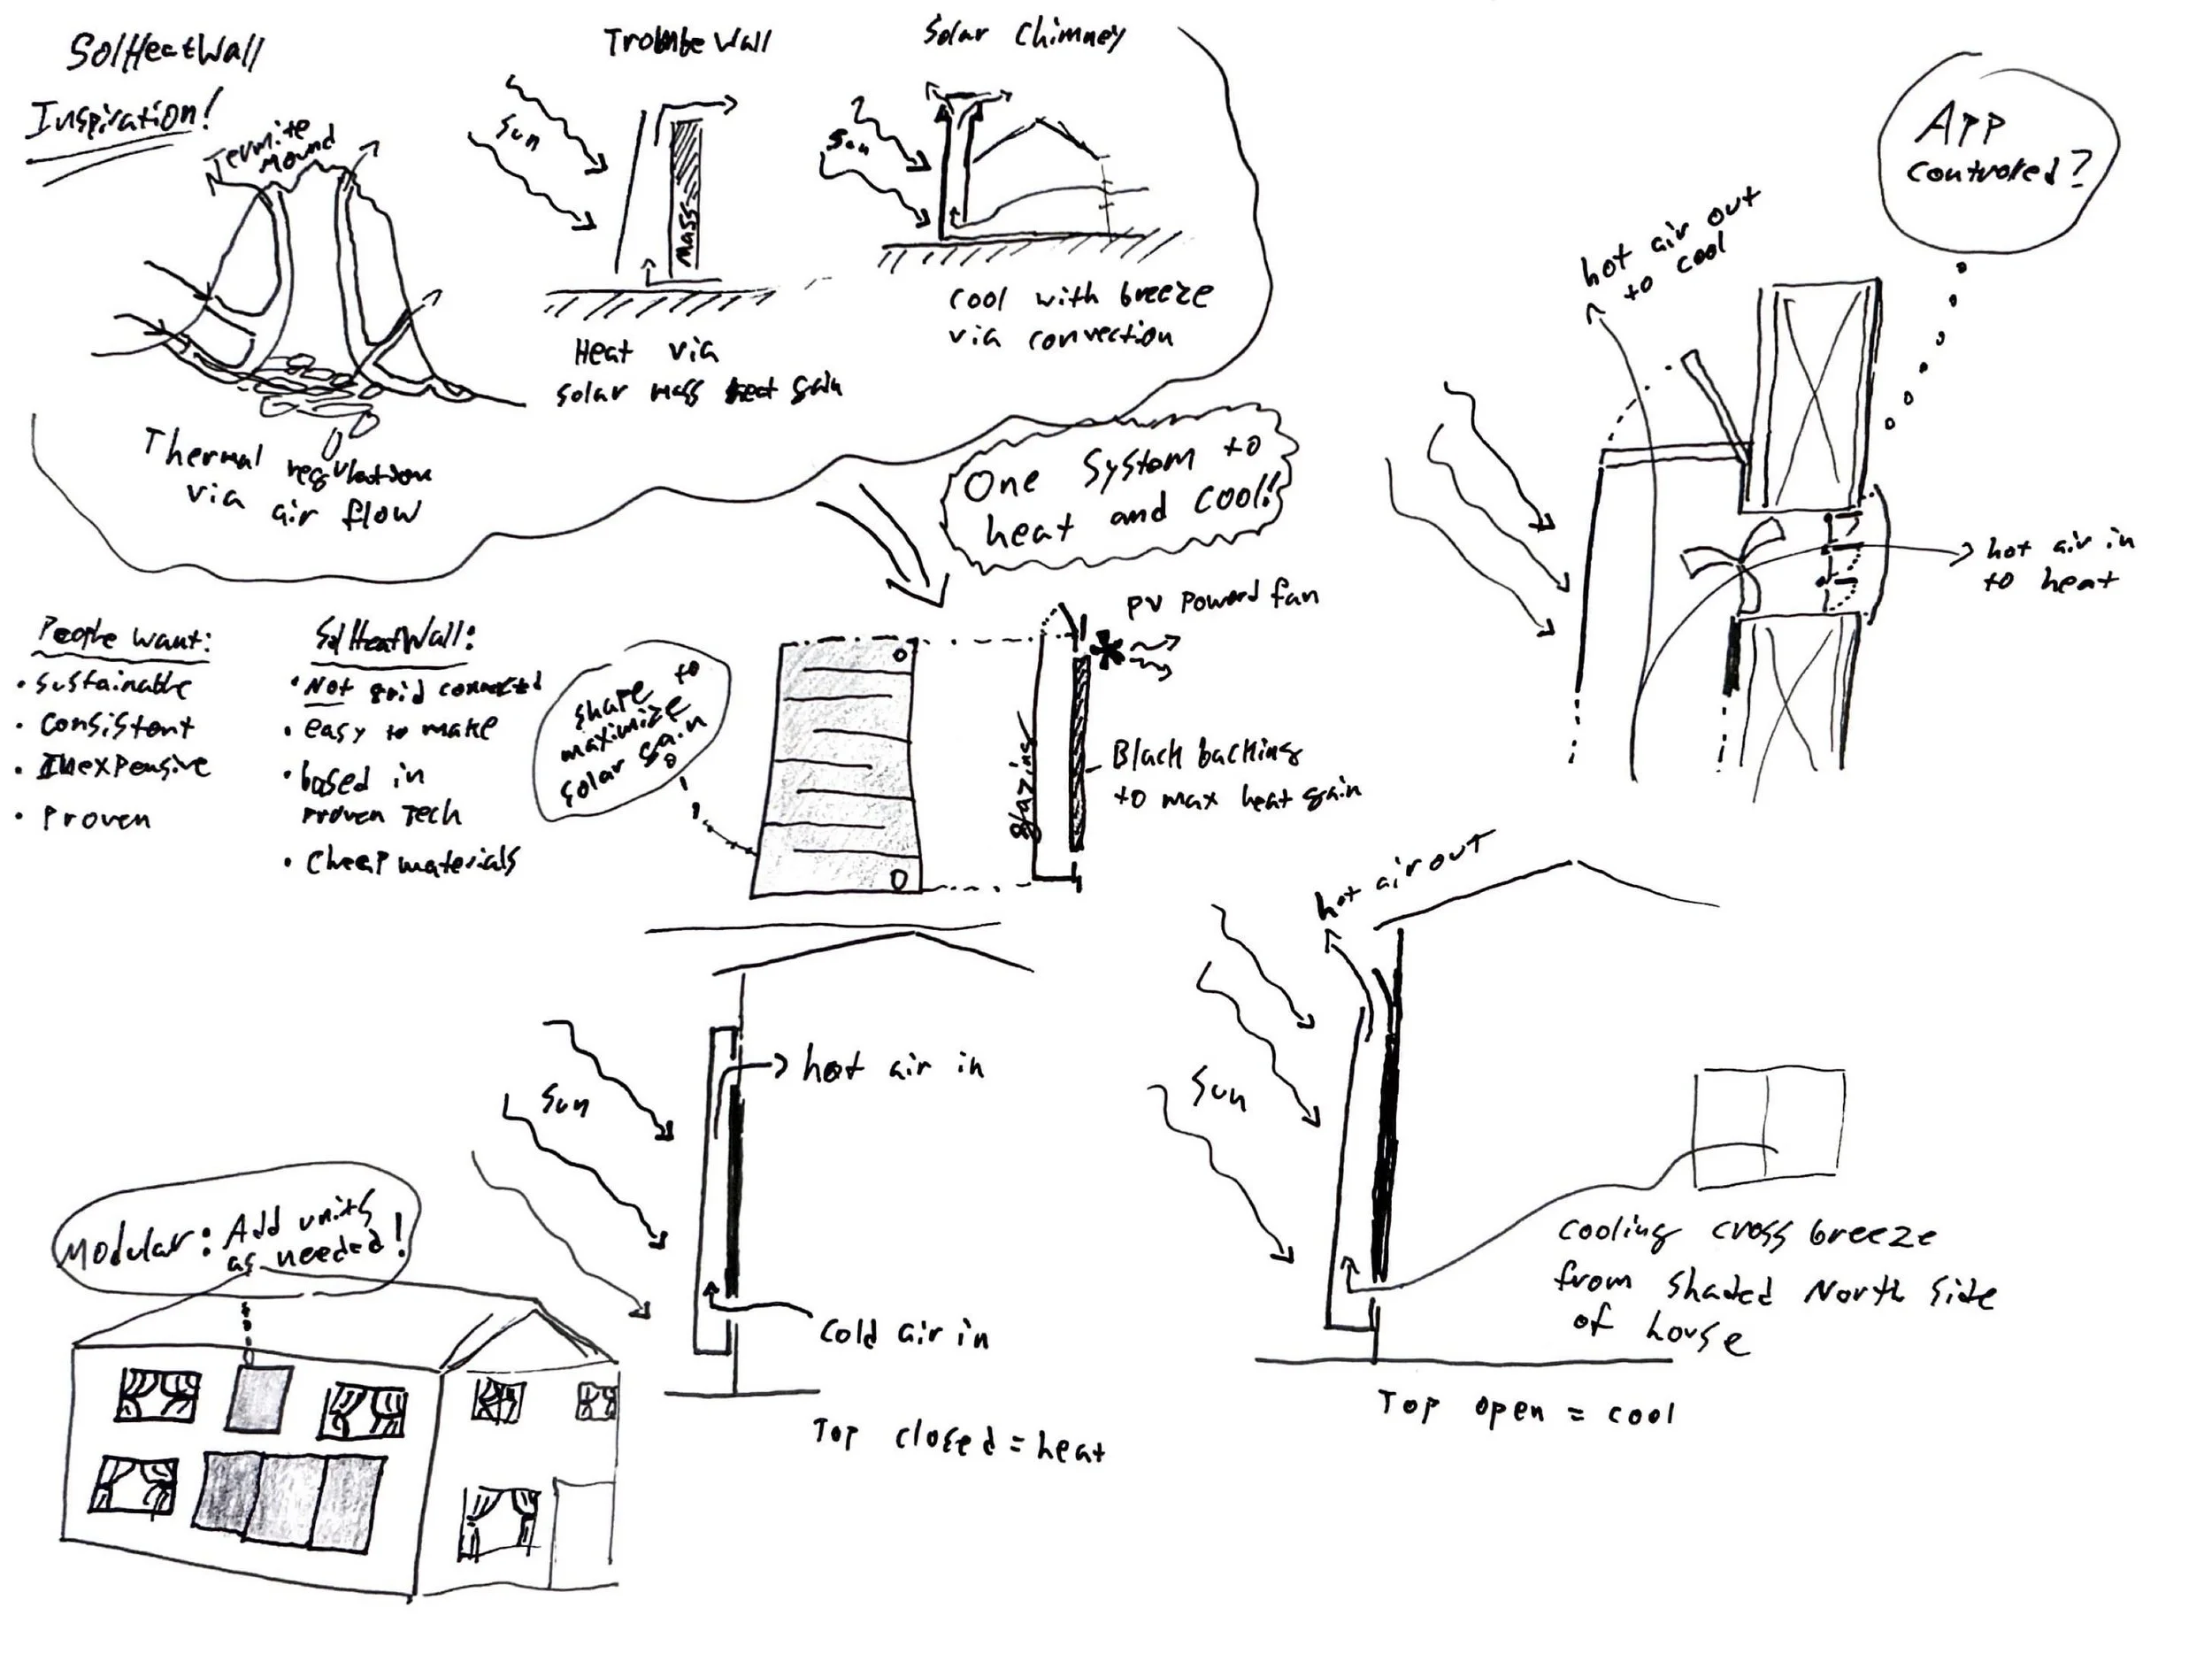 SolHeatWall
Inspiration!
Termite
Mound
Thermal regulation
via air flow
Trombe Wall
Sun
Mass
Heat via
solar mass heat gain
Solar Chimney
Sun
cool with breeze
via convection
App
controled?
hot air out
to cool
hot air in
to heat
One System to
heat and cool!
People want:
• Sustainable
• Consistent
• Inexpensive
• Proven
SolHeatWall:
• Not grid connected
• easy to make
• based in
proven Tech
• Cheap materials
shape to
maximize
solar gain
PV Powerd fan
glazing
Black backing
to max heat gain
Sun
hot air in
Cold air in
Top closed = heat
hot air out
Sun
cooling cross breeze
from shaded North side
of house
Top open = cool
Modular: Add units
as needed!